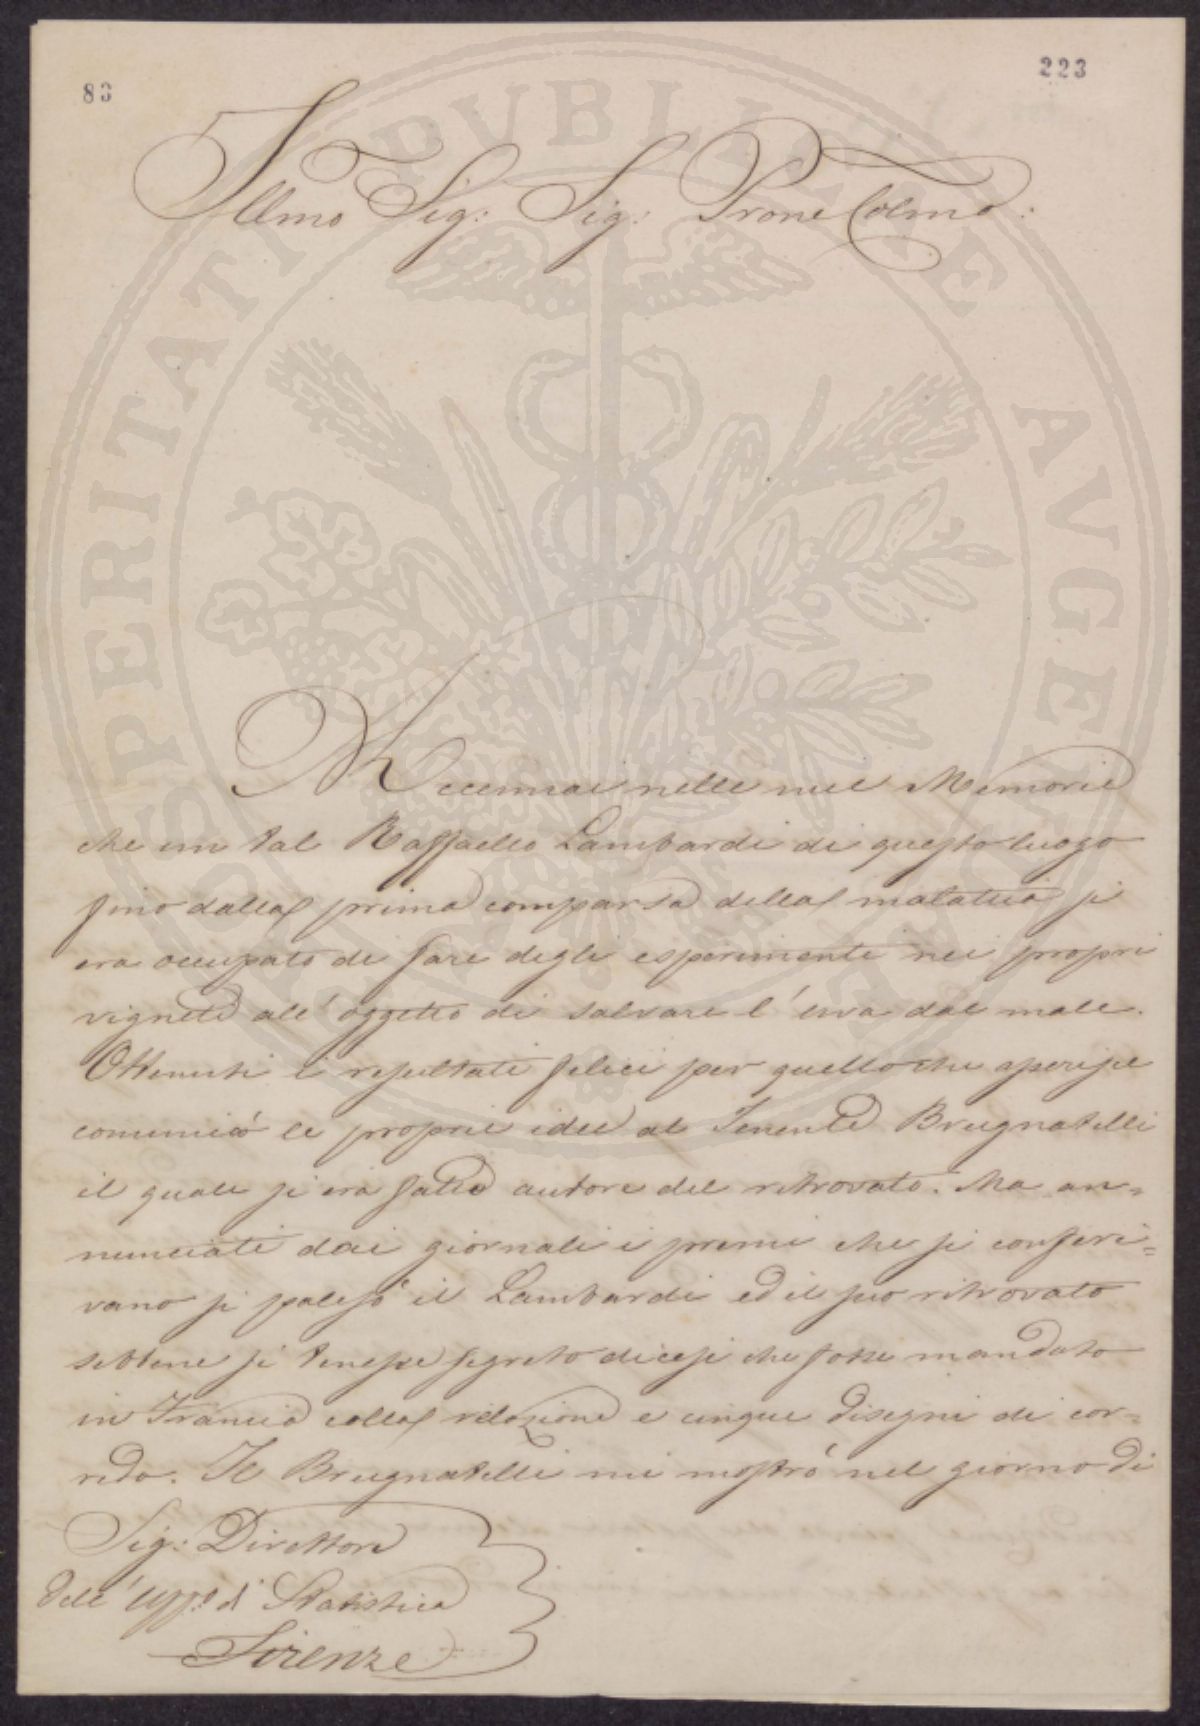 83
223
Illmo Sig: Sig: Prone Colmo:
Accennai nelle mie Memorie
che un tal Raffaello Lambardi di questo luogo
fino dalla prima comparsa della malattia si
era occupato di fare degli esperimenti nei propri
vigneti all'oggetto di salvare l'uva dal male.
Ottenuti i resultati felici per quello che asserisce
comunicò le proprie idee al Tenente Brugnatelli
il quale si era fatto autore del ritrovato. Ma an=
nunciati dai giornali i premi che si conferi=
vano si palesò il Lambardi ed il suo ritrovato
sebbene si tenesse segreto dicesi che fosse mandato
in Francia colla relazione e cinque disegni di cor=
redo. Il Brugnatelli mi mostrò nel giorno di
Sig: Direttore
dell'Uffo. di Statistica
Firenze
PUBLICAE PROSPERITATI AUGENDAE